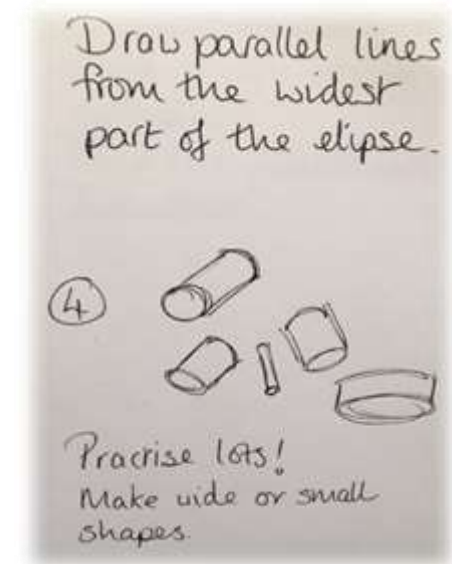 Draw parallel lines
from the widest
part of the elipse.
4
Practise lots!
Make wide or small
shapes.